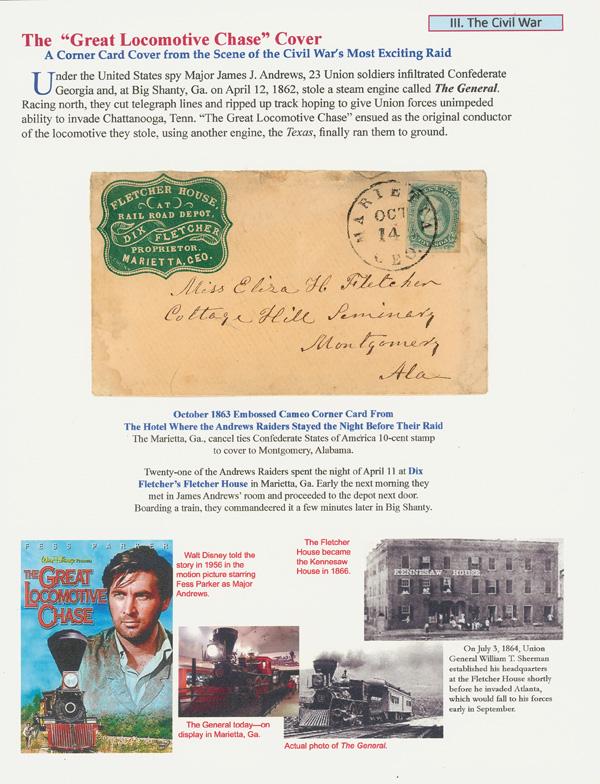 III. The Civil War
The “Great Locomotive Chase” Cover
A Corner Card Cover from the Scene of the Civil War's Most Exciting Raid
Under the United States spy Major James J. Andrews, 23 Union soldiers infiltrated Confederate
Georgia and, at Big Shanty, Ga. on April 12, 1862, stole a steam engine called The General.
Racing north, they cut telegraph lines and ripped up track hoping to give Union forces unimpeded
ability to invade Chattanooga, Tenn. “The Great Locomotive Chase” ensued as the original conductor
of the locomotive they stole, using another engine, the Texas, finally ran them to ground.
FLETCHER HOUSE,
AT
RAIL ROAD DEPOT.
DIX FLETCHER
PROPRIETOR.
MARIETTA, GEO.
MARIETTA
OCT
14
GEO.
Miss Eliza H. Fletcher
Cottage Hill Seminary
Montgomery
Ala
October 1863 Embossed Cameo Corner Card From
The Hotel Where the Andrews Raiders Stayed the Night Before Their Raid
The Marietta, Ga., cancel ties Confederate States of America 10-cent stamp
to cover to Montgomery, Alabama.
Twenty-one of the Andrews Raiders spent the night of April 11 at Dix
Fletcher's Fletcher House in Marietta, Ga. Early the next morning they
met in James Andrews' room and proceeded to the depot next door.
Boarding a train, they commandeered it a few minutes later in Big Shanty.
FESS PARKER
Walt Disney Presents
THE GREAT
LOCOMOTIVE
CHASE
Walt Disney told the
story in 1956 in the
motion picture starring
Fess Parker as Major
Andrews.
The Fletcher
House became
the Kennesaw
House in 1866.
KENNESAW HOUSE
The General today—on
display in Marietta, Ga.
Actual photo of The General.
On July 3, 1864, Union
General William T. Sherman
established his headquarters
at the Fletcher House shortly
before he invaded Atlanta,
which would fall to his forces
early in September.